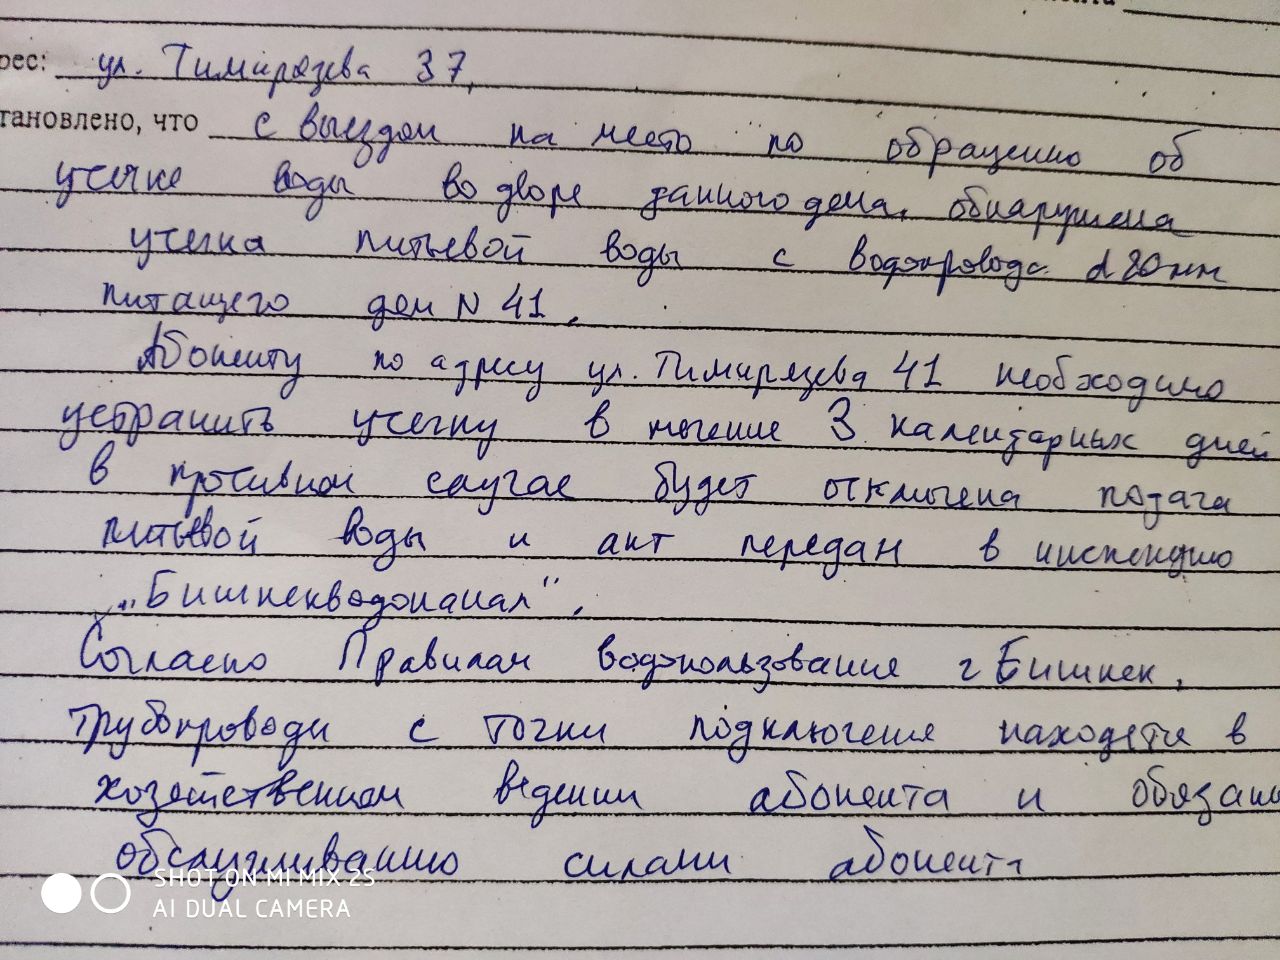 рес: ул. Тимирязева 37,
тановлено, что с выездом на место по обращению об
утечке воды во дворе данного дома, обнаружена
утечка питьевой воды с водопровода d 20 мм
питащего дом N 41.
Абоненту по адресу ул. Тимирязева 41 необходимо
устранить утечку в течение 3 календарных дней
в противном случае будет отключена подача
питьевой воды и акт передан в инспекцию
„Бишкекводоканал".
Согласно Правилам водопользования г Бишкек,
трубопроводы с точки подключения находятся в
хозяйственном ведении абонента и обязани
обслуживанию силами абонента
SHOT ON MI MIX 2S
AI DUAL CAMERA